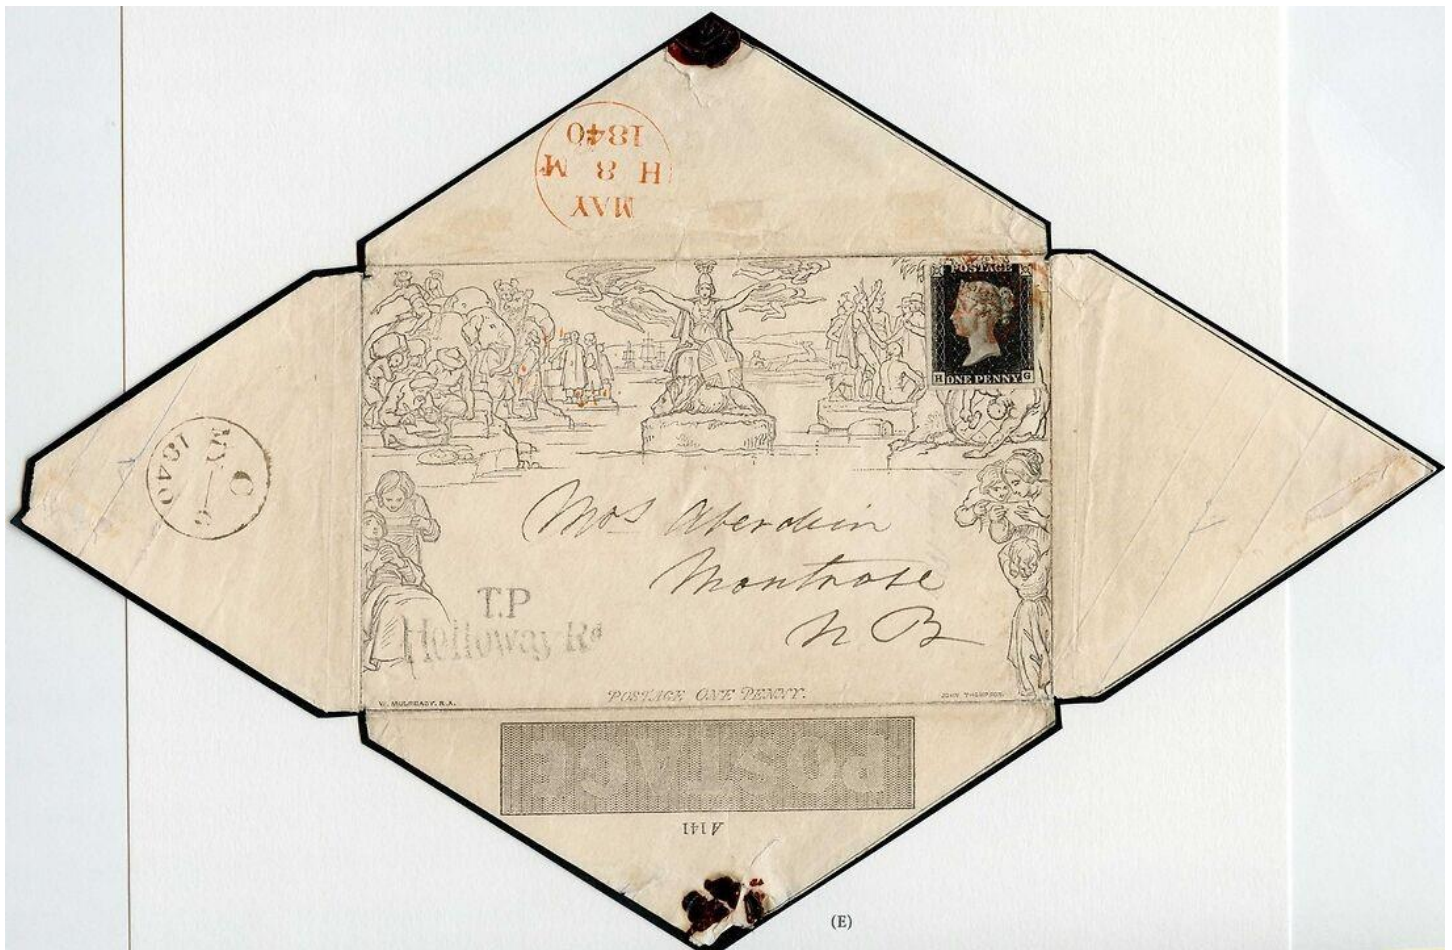 MAY
H 8 M
1840
POSTAGE
H ONE PENNY G
C
MY 6
1840
Mrs Aberdein
Montrose
N B
T.P
Holloway Rd
POSTAGE ONE PENNY.
W. MULREADY, R.A.
JOHN THOMPSON.
POSTAGE
A141
(E)